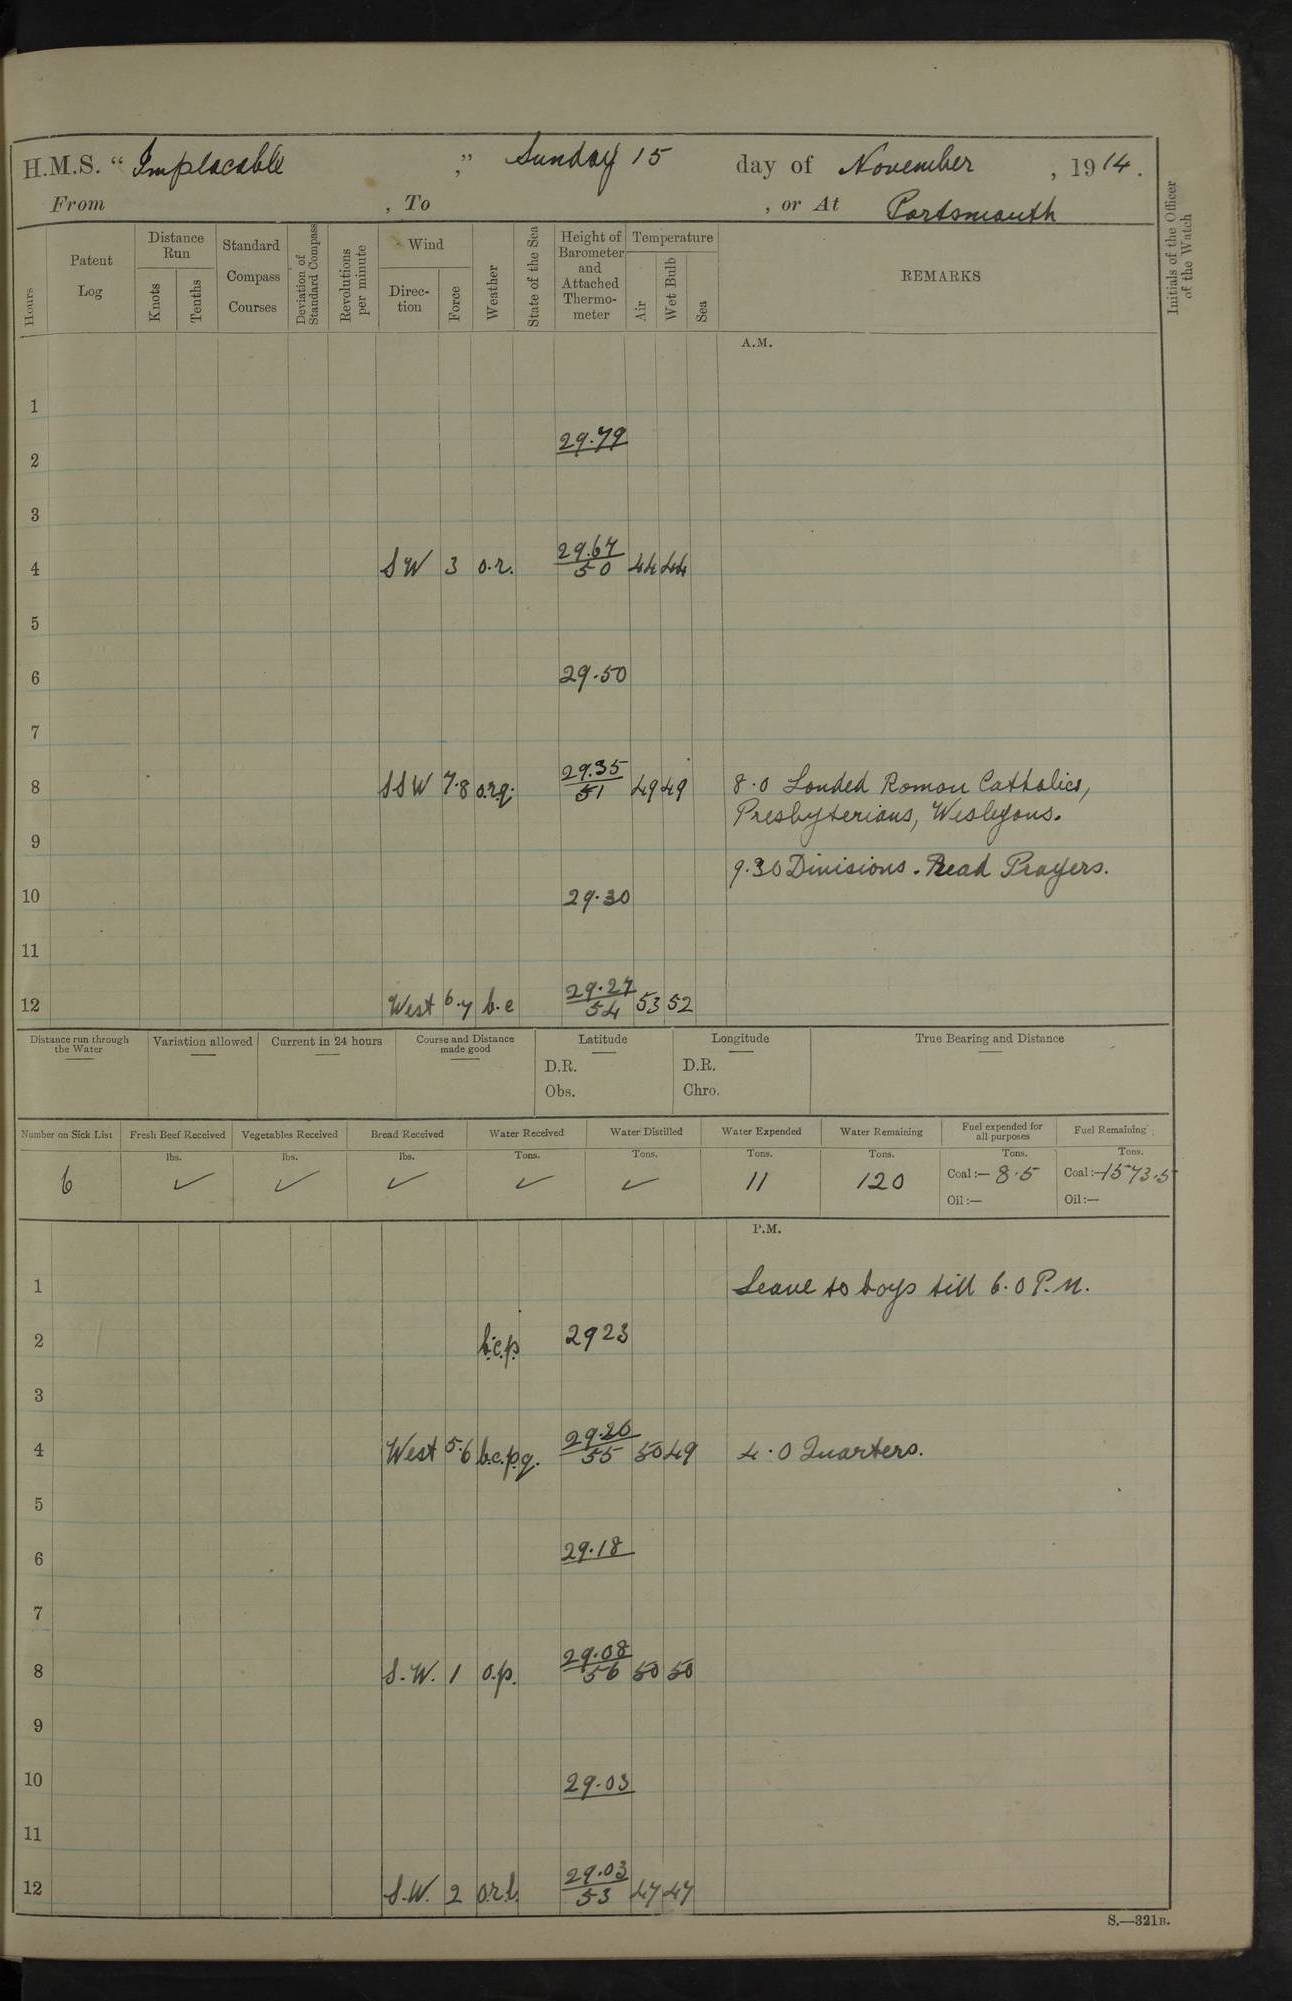 H.M.S. “ Implacable ,” Sunday 15 day of November , 1914.
From , To , or At Portsmouth
Hours
Patent Log
Distance Run
Knots
Tenths
Standard Compass Courses
Deviation of Standard Compass
Revolutions per minute
Wind
Direction
Force
Weather
State of the Sea
Height of Barometer and Attached Thermometer
Temperature
Air
Wet Bulb
Sea
REMARKS
Initials of the Officer of the Watch
A.M.
1
2 29.79
3
4 SW 3 o.r. 29.67/50 44 44
5
6 29.50
7
8 SSW 7.8 o.r.q. 29.35/51 49 49 8.0 Landed Roman Catholics,
Presbyterians, Wesleyans.
9
9.30 Divisions. Read Prayers.
10 29.30
11
12 West 6.7 b.c 29.27/54 53 52
Distance run through the Water
Variation allowed
Current in 24 hours
Course and Distance made good
Latitude
D.R.
Obs.
Longitude
D.R.
Chro.
True Bearing and Distance
Number on Sick List
6
Fresh Beef Received
lbs.
✓
Vegetables Received
lbs.
✓
Bread Received
lbs.
✓
Water Received
Tons.
✓
Water Distilled
Tons.
✓
Water Expended
Tons.
11
Water Remaining
Tons.
120
Fuel expended for all purposes
Tons.
Coal:— 8.5
Oil:—
Fuel Remaining
Tons.
Coal:— 1573.5
Oil:—
P.M.
1 Leave to boys till 6.0 P.M.
2 b.c.p. 29 23
3
4 West 5.6 b.c.p.q. 29.20/55 50 49 4.0 Quarters.
5
6 29.18
7
8 S.W. 1 o.p. 29.08/56 50 50
9
10 29.03
11
12 S.W. 2 o.r.l. 29.03/53 47 47
S.—321B.